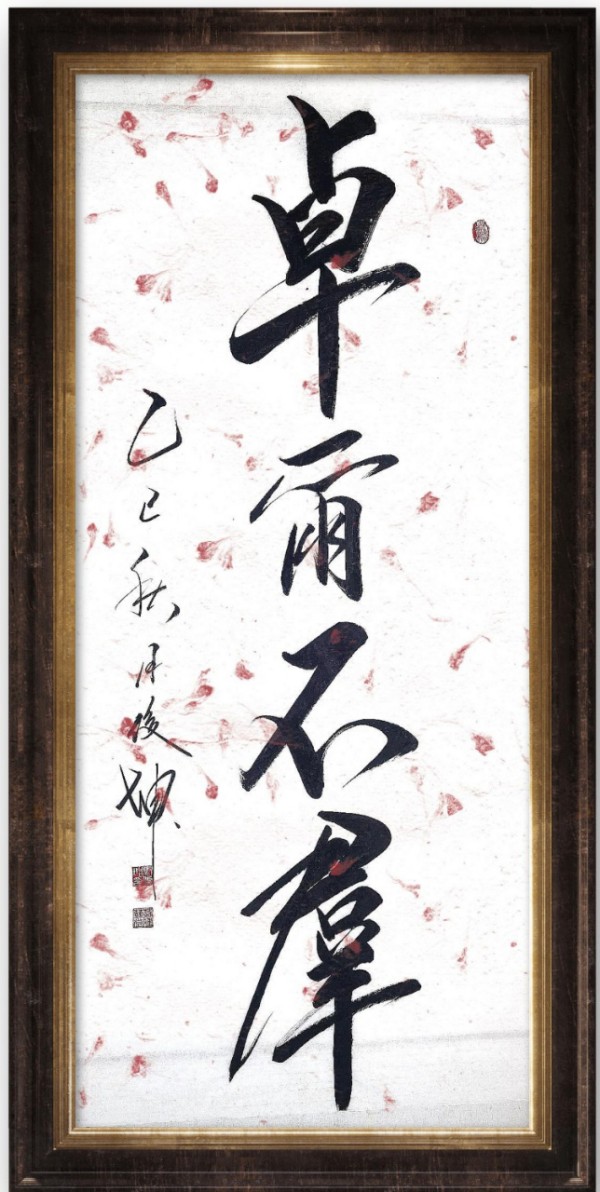 卓爾不羣
乙巳秋月俊坤